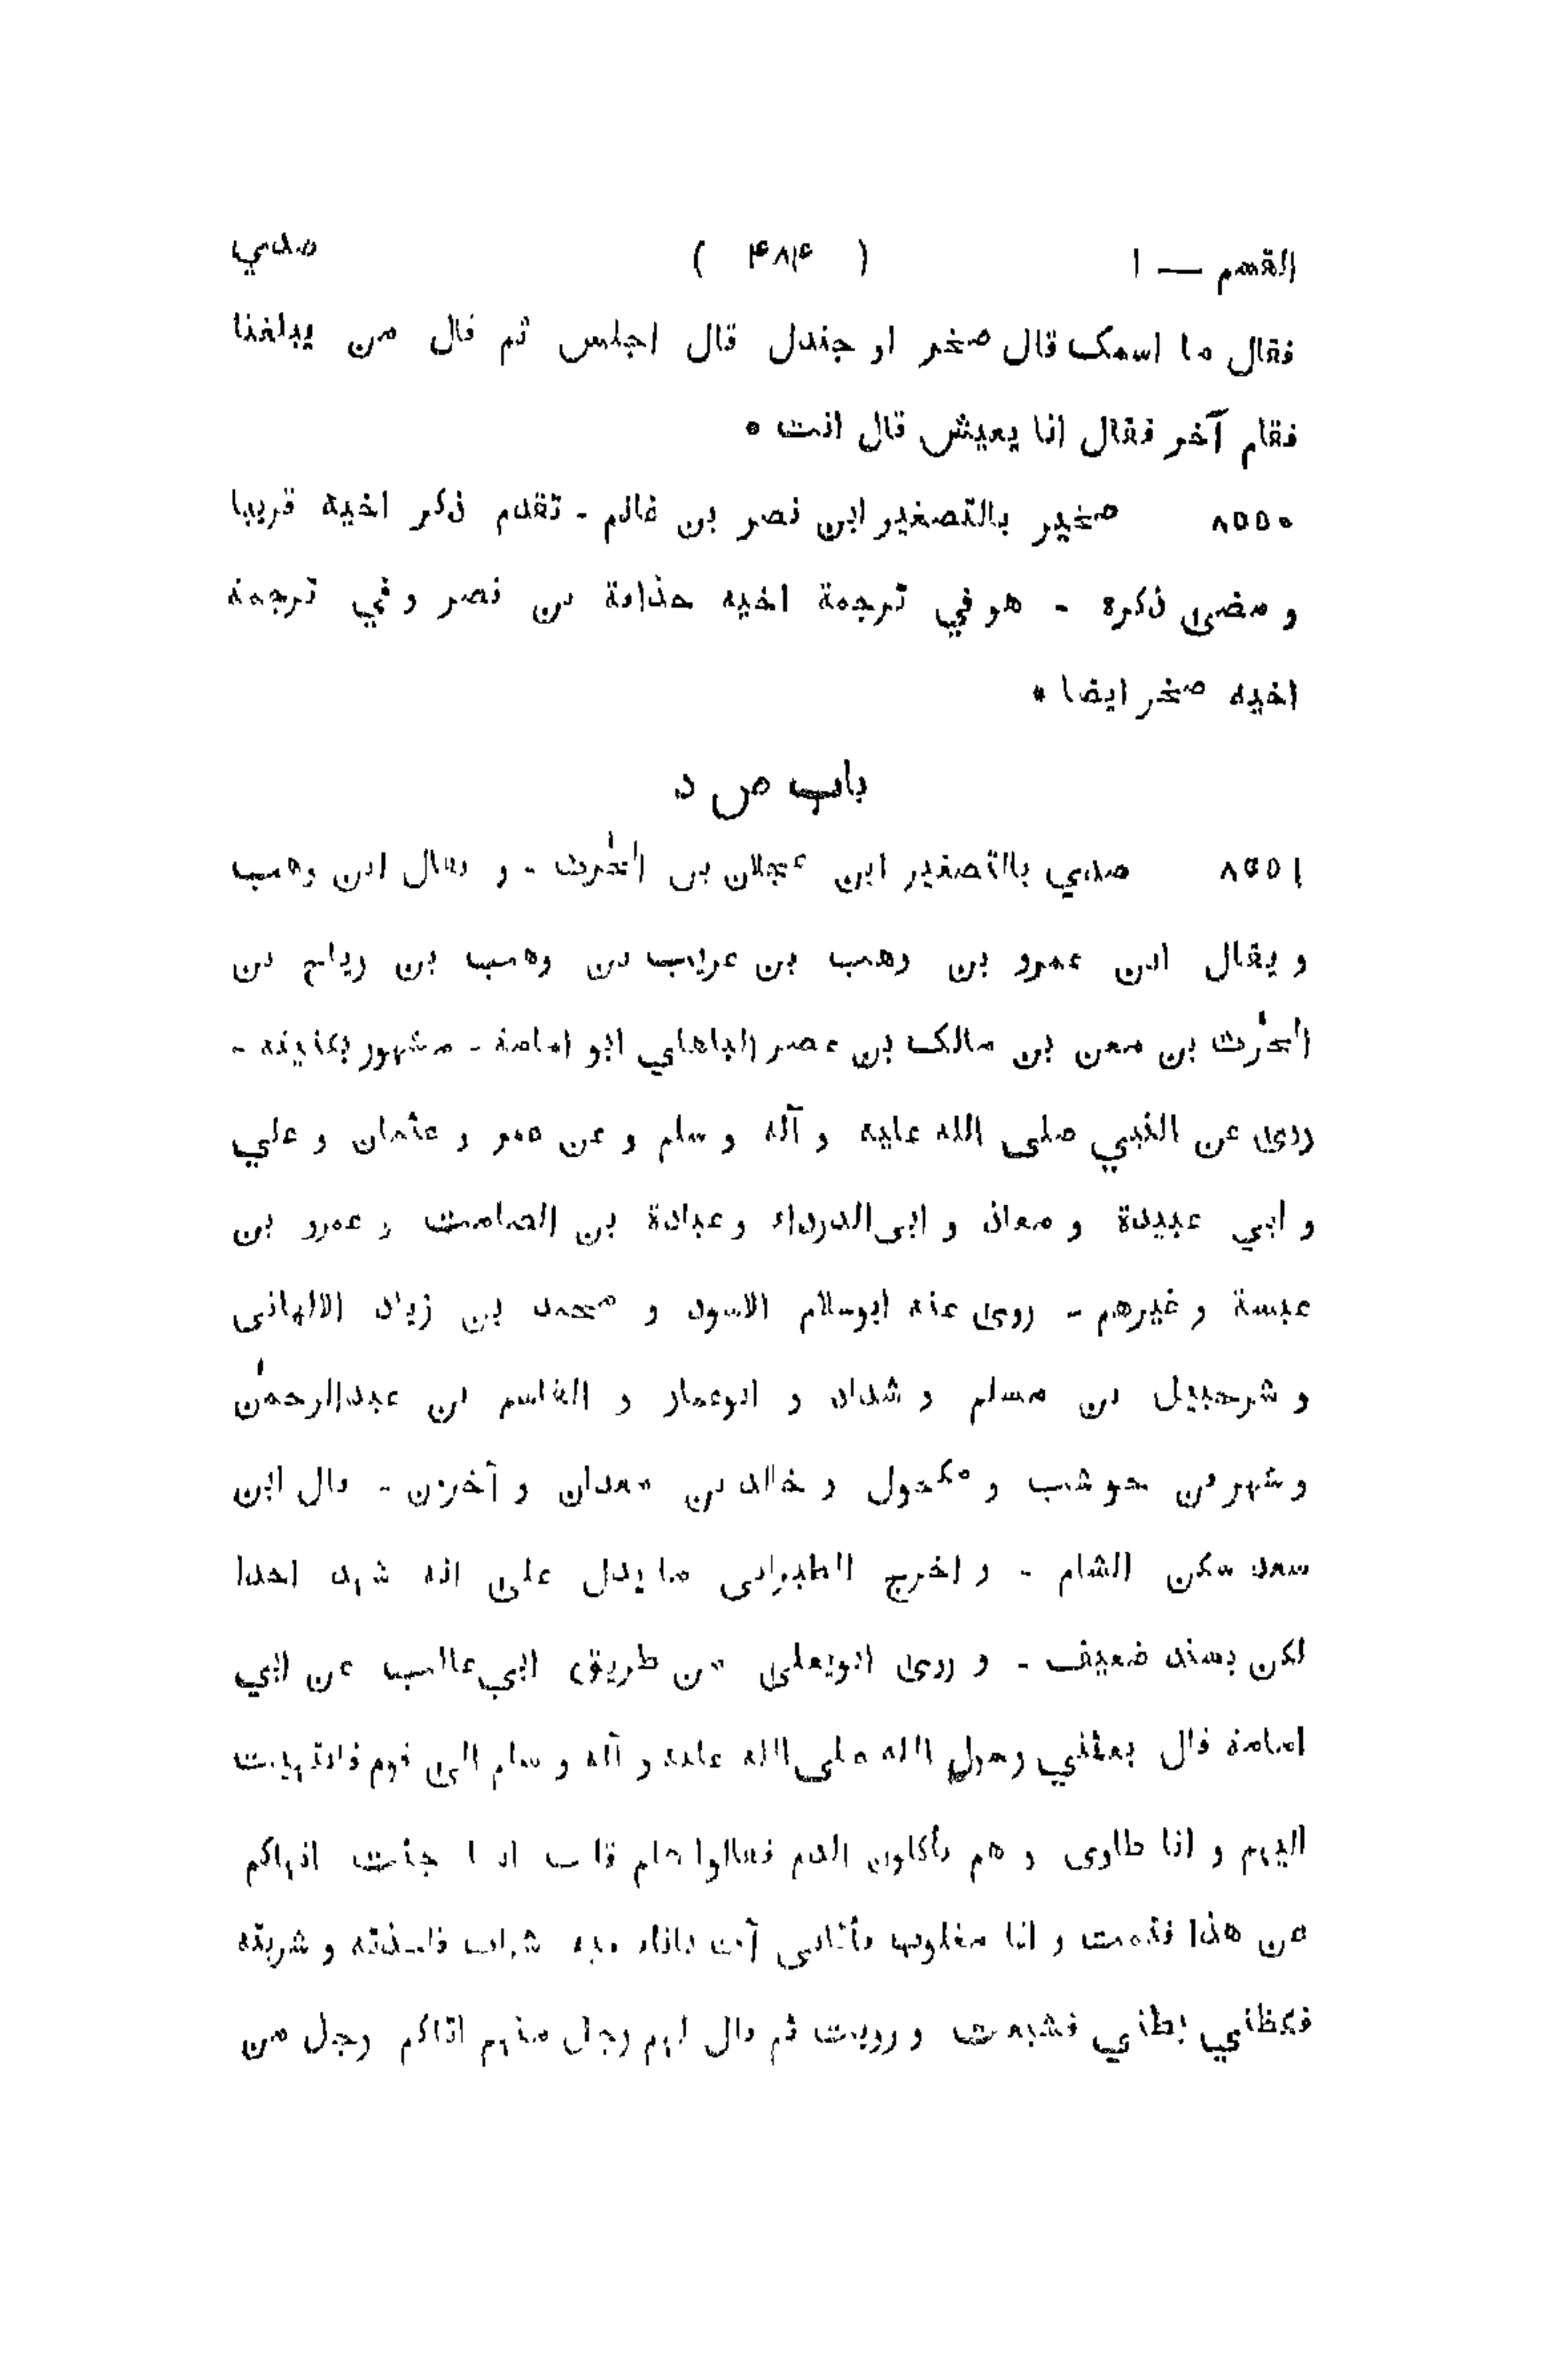 القسم — ١ ( ۴۸۴ ) صدي
فقال ما اسمک قال صخر او جندل قال اجلس ثم قال من يبلغنا
فقام آخر فقال انا يعيش قال انت *
٨٥٥٠ صخير بالتصغير ابن نصر بن غانم - تقدم ذكر اخيه قريبا
و مضى ذكره - هو في ترجمة اخيه حذافة بن نصر و في ترجمة
اخيه صخر ايضا *
باب ص د
٨٥٥١ صدي بالتصغير ابن عجلان بن الحٰرث - و يقال ابن وهب
و يقال ابن عمرو بن وهب بن عريب بن وهب بن رياح بن
الحٰرث بن معن بن مالک بن عصر الباهلي ابو امامة - مشهور بكنيته -
روى عن النبي صلى الله عليه و آله و سلم و عن عمر و عثمان و علي
و ابي عبيدة و معاذ و ابى الدرداء و عبادة بن الصامت و عمرو بن
عبسة و غيرهم - روى عنه ابوسلام الاسود و محمد بن زياد الالهانى
و شرحبيل بن مسلم و شداد و ابوعمار و القاسم بن عبدالرحمٰن
و شهر بن حوشب و مكحول و خالد بن معدان و آخرن - قال ابن
سعد سكن الشام - و اخرج الطبرانى ما يدل على انه شهد احدا
لكن بسند ضعيف - و روى ابويعلى من طريق ابي غالب عن ابي
امامة قال بعثني رسول الله صلى الله عليه و آله و سلم الى قوم فانتهيت
اليهم و انا طاوى و هم يأكلون الدم فقالوا هلم قلت انما جئت انهاكم
عن هذا فنمت و انا مغلوب فأتانى آت باناء فيه شراب فاخذته و شربته
فكظني بطني فشبعت و رويت ثم قال لهم رجل منهم اتاكم رجل من